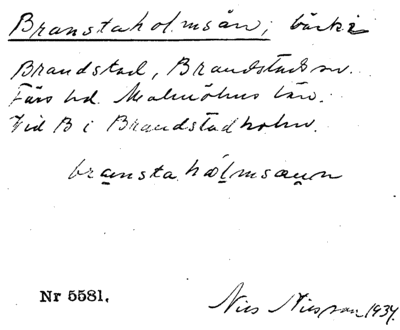 Branstaholmsån; bäck i
Brandstad, Brandstads sn.
Färs hd. Malmöhus län.
Vid B i Brandstadholm.
bransta hólmsaun
Nr 5581.
Nils Nilsson 1934.